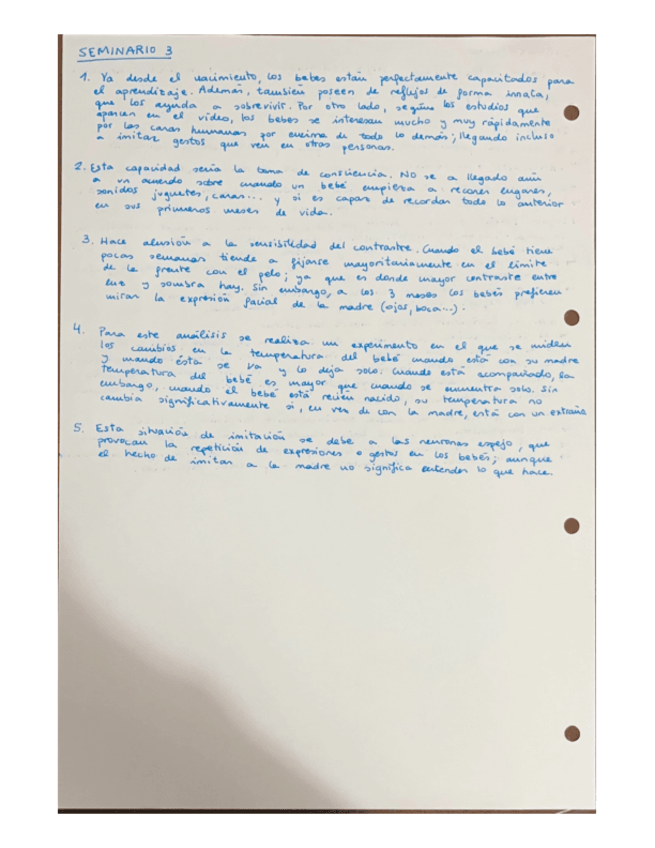 SEMINARIO 3
1. Ya desde el nacimiento, los bebes están perfectamente capacitados para
el aprendizaje. Además, también poseen de reflejos de forma innata,
que los ayuda a sobrevivir. Por otro lado, según los estudios que
aparecen en el vídeo, los bebes se interesan mucho y muy rápidamente
por las caras humanas por encima de todo lo demás; llegando incluso
a imitar gestos que ven en otras personas.
2. Esta capacidad sería la toma de consciencia. No se a llegado aún
a un acuerdo sobre cuando un bebé empieza a
sonidos juguetes, caras... y si es capaz de recordar todo lo anterior
en sus primeros meses de vida.
3. Hace alusión a la sensibilidad del contraste. Cuando el bebé tiene
pocas semanas tiende a fijarse mayoritariamente en el límite
de la frente con el pelo; ya que es donde mayor contraste entre
luz y sombra hay. Sin embargo, a los 3 meses los bebés prefieren
mirar la expresión facial de la madre (ojos, boca...).
4. Para este análisis se realiza un experimento en el que se miden
los cambios en la temperatura del bebé cuando está con su madre
y cuando ésta se va y lo deja solo. Cuando está acompañado, la
temperatura del bebé es mayor que cuando se encuentra solo. Sin
embargo, cuando el bebé está recién nacido, su temperatura no
cambia significativamente si, en vez de con la madre, está con un extraño
5. Esta situación de imitación se debe a las neuronas espejo, que
provocan la repetición de expresiones o gestos en los bebés; aunque
el hecho de imitar a la madre no significa entender lo que hace.